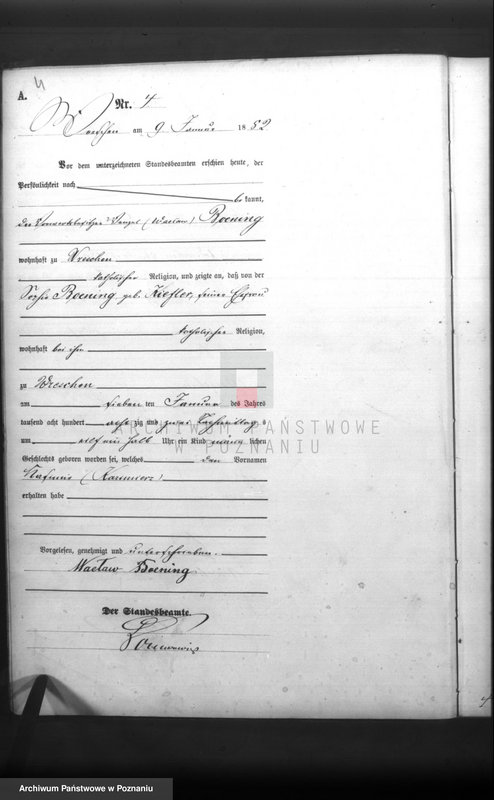 A.
4
Nr. 4
Wreschen am 9 Januar 1882
Vor dem unterzeichneten Standesbeamten erschien heute, der
Persönlichkeit nach
be kannt,
der Vorwerksbesitzer Wenzel (Waclaw) Boening
wohnhaft zu Wreschen
katholischer Religion, und zeigte an, daß von der
Boening geb. Ziegler, seiner Ehefrau
katholischer Religion,
wohnhaft bei ihm
zu Wreschen
am sieben ten Januar des Jahres
tausend acht hundert acht zig und zwei Nachmittags
um elf ein halb Uhr ein Kind männ lichen
Geschlechts geboren worden sei, welches den Vornamen
(Kasimierz)
erhalten habe
ARCHIWUM PAŃSTWOWE
W POZNANIU
Vorgelesen, genehmigt und unterschrieben.
Wacław Boening
Der Standesbeamte.
4
Archiwum Państwowe w Poznaniu